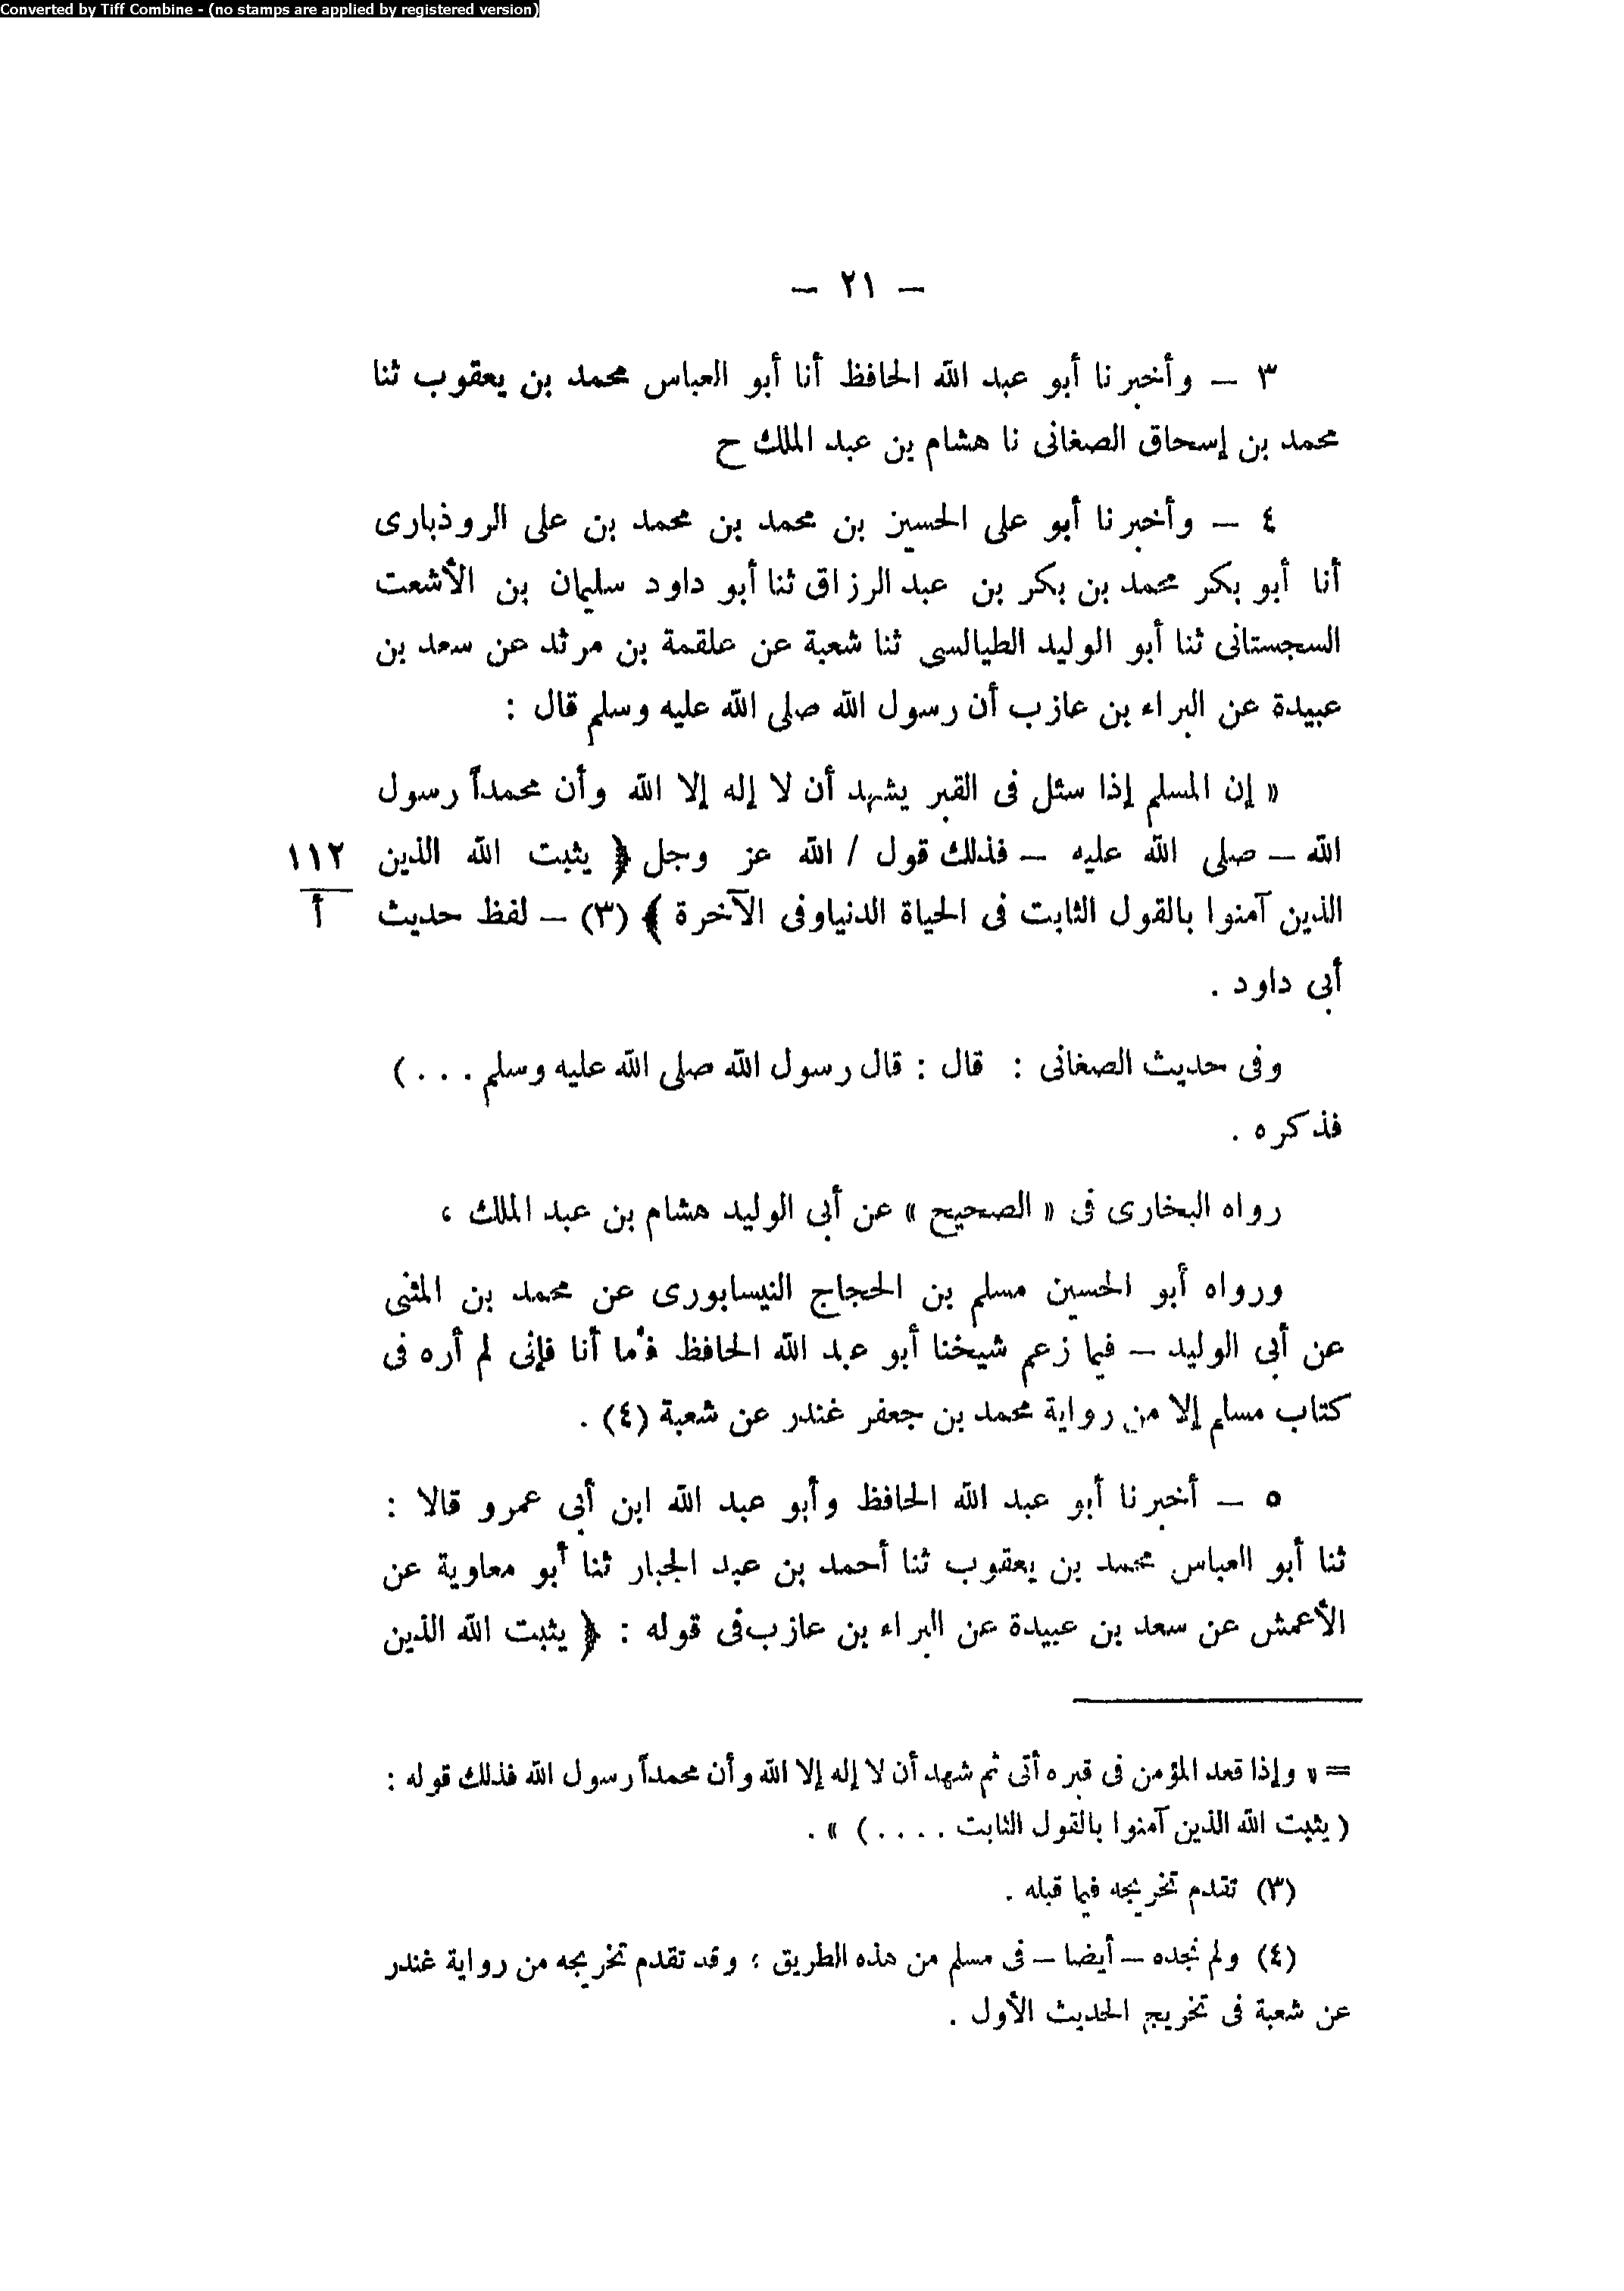 Converted by Tiff Combine - (no stamps are applied by registered version)
– ٢١ –
٣ – وأخبرنا أبو عبد الله الحافظ أنا أبو العباس محمد بن يعقوب ثنا
محمد بن إسحاق الصغانى نا هشام بن عبد الملك ح
٤ – وأخبرنا أبو على الحسين بن محمد بن محمد بن على الروذبارى
أنا أبو بكر محمد بن بكر بن عبد الرزاق ثنا أبو داود سليمان بن الأشعت
السجستانى ثنا أبو الوليد الطيالسى ثنا شعبة عن علقمة بن مرثد عن سعد بن
عبيدة عن البراء بن عازب أن رسول الله صلى الله عليه وسلم قال :
« إن المسلم إذا سئل فى القبر يشهد أن لا إله إلا الله وأن محمداً رسول
الله – صلى الله عليه – فذلك قول / الله عز وجل ﴿ يثبت الله الذين ١١٢
الذين آمنوا بالقول الثابت فى الحياة الدنياوفى الآخرة ﴾ (٣) – لفظ حديث أ
أبى داود .
وفى حديث الصغانى : قال : قال رسول الله صلى الله عليه وسلم . . . )
فذكره .
رواه البخارى فى « الصحيح » عن أبى الوليد هشام بن عبد الملك ،
ورواه أبو الحسين مسلم بن الحجاج النيسابورى عن محمد بن المثنى
عن أبى الوليد – فيما زعم شيخنا أبو عبد الله الحافظ فأما أنا فإنى لم أره فى
كتاب مسلم إلا من رواية محمد بن جعفر غندر عن شعبة (٤) .
٥ – أخبرنا أبو عبد الله الحافظ وأبو عبد الله ابن أبى عمرو قالا :
ثنا أبو العباس محمد بن يعقوب ثنا أحمد بن عبد الجبار ثنا أبو معاوية عن
الأعمش عن سعد بن عبيدة عن البراء بن عازب فى قوله : ﴿ يثبت الله الذين
= « وإذا قعد المؤمن فى قبره أتى ثم شهد أن لا إله إلا الله وأن محمداً رسول الله فذلك قوله :
( يثبت الله الذين آمنوا بالقول الثابت . . . . ) » .
(٣) تقدم تخريجه فيما قبله .
(٤) ولم نجده – أيضا – فى مسلم من هذه الطريق ؛ وقد تقدم تخريجه من رواية غندر
عن شعبة فى تخريج الحديث الأول .